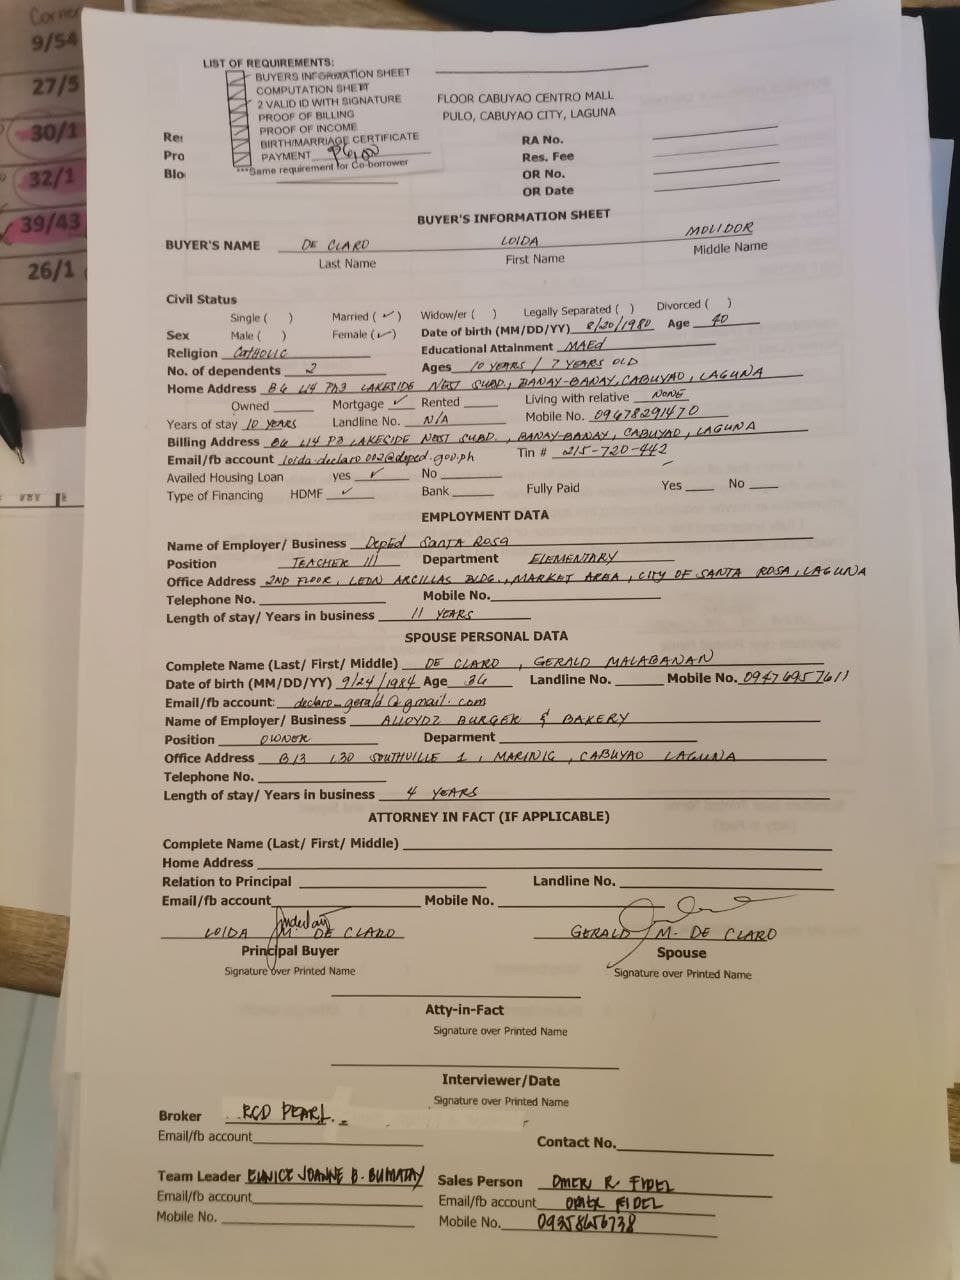 Corner
9/54
27/5
30/1
32/1
39/43
26/1
LIST OF REQUIREMENTS:
BUYERS INFORMATION SHEET
COMPUTATION SHETT
2 VALID ID WITH SIGNATURE
PROOF OF BILLING
PROOF OF INCOME
BIRTH/MARRIAGE CERTIFICATE
PAYMENT
***Same requirement for Co-borrower
FLOOR CABUYAO CENTRO MALL
PULO, CABUYAO CITY, LAGUNA
Re: RA No.
Pro Res. Fee
Blo OR No.
OR Date
BUYER'S INFORMATION SHEET
BUYER'S NAME DE CLARO LOIDA MOLIDOR
Last Name First Name Middle Name
Civil Status
Single ( ) Married ( ✓ ) Widow/er ( ) Legally Separated ( ) Divorced ( )
Sex Male ( ) Female ( ✓ ) Date of birth (MM/DD/YY) 8/20/1980 Age 40
Religion CATHOLIC Educational Attainment MAEd
No. of dependents 2 Ages 10 YEARS / 7 YEARS OLD
Home Address B6 L14 PH3 LAKESIDE NEST SUBD., BANAY-BANAY, CABUYAO, LAGUNA
Owned Mortgage ✓ Rented Living with relative NONE
Years of stay 10 YEARS Landline No. N/A Mobile No. 09678291470
Billing Address B6 L14 P3 LAKESIDE NEST SUBD., BANAY-BANAY, CABUYAO, LAGUNA
Email/fb account loida.declaro002@deped.gov.ph Tin # 215-720-442
Availed Housing Loan yes ✓ No
Type of Financing HDMF ✓ Bank Fully Paid Yes No
EMPLOYMENT DATA
Name of Employer/ Business DepEd SANTA ROSA
Position TEACHER III Department ELEMENTARY
Office Address 2ND FLOOR, LEON ARCILLAS BLDG., MARKET AREA, CITY OF SANTA ROSA, LAGUNA
Telephone No. Mobile No.
Length of stay/ Years in business 11 YEARS
SPOUSE PERSONAL DATA
Complete Name (Last/ First/ Middle) DE CLARO, GERALD MALABANAN
Date of birth (MM/DD/YY) 9/24/1984 Age 36 Landline No. Mobile No. 09476957611
Email/fb account: declaro_gerald@gmail.com
Name of Employer/ Business ALLOYDZ BURGER & BAKERY
Position OWNER Deparment
Office Address B13 L30 SOUTHVILLE 1, MARINIG, CABUYAO LAGUNA
Telephone No.
Length of stay/ Years in business 4 YEARS
ATTORNEY IN FACT (IF APPLICABLE)
Complete Name (Last/ First/ Middle)
Home Address
Relation to Principal Landline No.
Email/fb account Mobile No.
LOIDA M. DE CLARO GERALD M. DE CLARO
Principal Buyer Spouse
Signature over Printed Name Signature over Printed Name
Atty-in-Fact
Signature over Printed Name
Interviewer/Date
Signature over Printed Name
Broker RCD PEARL.
Email/fb account Contact No.
Team Leader EUNICE JOANNE B. BUMATAY Sales Person OMER R. FIDEL
Email/fb account Email/fb account OMER FIDEL
Mobile No. Mobile No. 09358656738